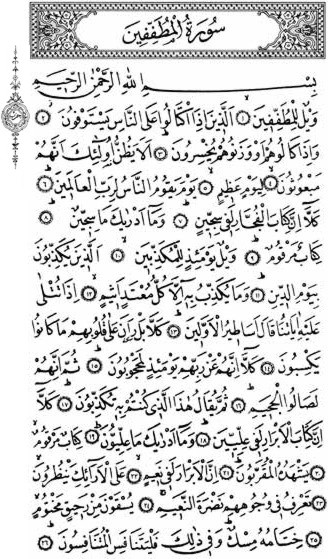 سُورَةُ الْمُطَفِّفِينَ
بِسْمِ اللهِ الرَّحْمٰنِ الرَّحِيمِ
وَيْلٌ لِلْمُطَفِّفِينَ ١ الَّذِينَ إِذَا اكْتَالُوا عَلَى النَّاسِ يَسْتَوْفُونَ ٢
وَإِذَا كَالُوهُمْ أَوْ وَزَنُوهُمْ يُخْسِرُونَ ٣ أَلَا يَظُنُّ أُولٰئِكَ أَنَّهُمْ
مَبْعُوثُونَ ٤ لِيَوْمٍ عَظِيمٍ ٥ يَوْمَ يَقُومُ النَّاسُ لِرَبِّ الْعَالَمِينَ ٦
كَلَّا إِنَّ كِتَابَ الْفُجَّارِ لَفِي سِجِّينٍ ٧ وَمَا أَدْرٰيكَ مَا سِجِّينٌ ٨
كِتَابٌ مَرْقُومٌ ٩ وَيْلٌ يَوْمَئِذٍ لِلْمُكَذِّبِينَ ١٠ الَّذِينَ يُكَذِّبُونَ
بِيَوْمِ الدِّينِ ١١ وَمَا يُكَذِّبُ بِهِ إِلَّا كُلُّ مُعْتَدٍ أَثِيمٍ ١٢ إِذَا تُتْلٰى
عَلَيْهِ اٰيَاتُنَا قَالَ أَسَاطِيرُ الْأَوَّلِينَ ١٣ كَلَّا بَلْ رَانَ عَلٰى قُلُوبِهِمْ مَا كَانُوا
يَكْسِبُونَ ١٤ كَلَّا إِنَّهُمْ عَنْ رَبِّهِمْ يَوْمَئِذٍ لَمَحْجُوبُونَ ١٥ ثُمَّ إِنَّهُمْ
لَصَالُوا الْجَحِيمِ ١٦ ثُمَّ يُقَالُ هٰذَا الَّذِي كُنْتُمْ بِهِ تُكَذِّبُونَ ١٧ كَلَّا
إِنَّ كِتَابَ الْأَبْرَارِ لَفِي عِلِّيِّينَ ١٨ وَمَا أَدْرٰيكَ مَا عِلِّيُّونَ ١٩ كِتَابٌ مَرْقُومٌ
٢٠ يَشْهَدُهُ الْمُقَرَّبُونَ ٢١ إِنَّ الْأَبْرَارَ لَفِي نَعِيمٍ ٢٢ عَلَى الْأَرَائِكِ يَنْظُرُونَ
٢٣ تَعْرِفُ فِي وُجُوهِهِمْ نَضْرَةَ النَّعِيمِ ٢٤ يُسْقَوْنَ مِنْ رَحِيقٍ مَخْتُومٍ
٢٥ خِتَامُهُ مِسْكٌ وَفِي ذٰلِكَ فَلْيَتَنَافَسِ الْمُتَنَافِسُونَ ٢٦